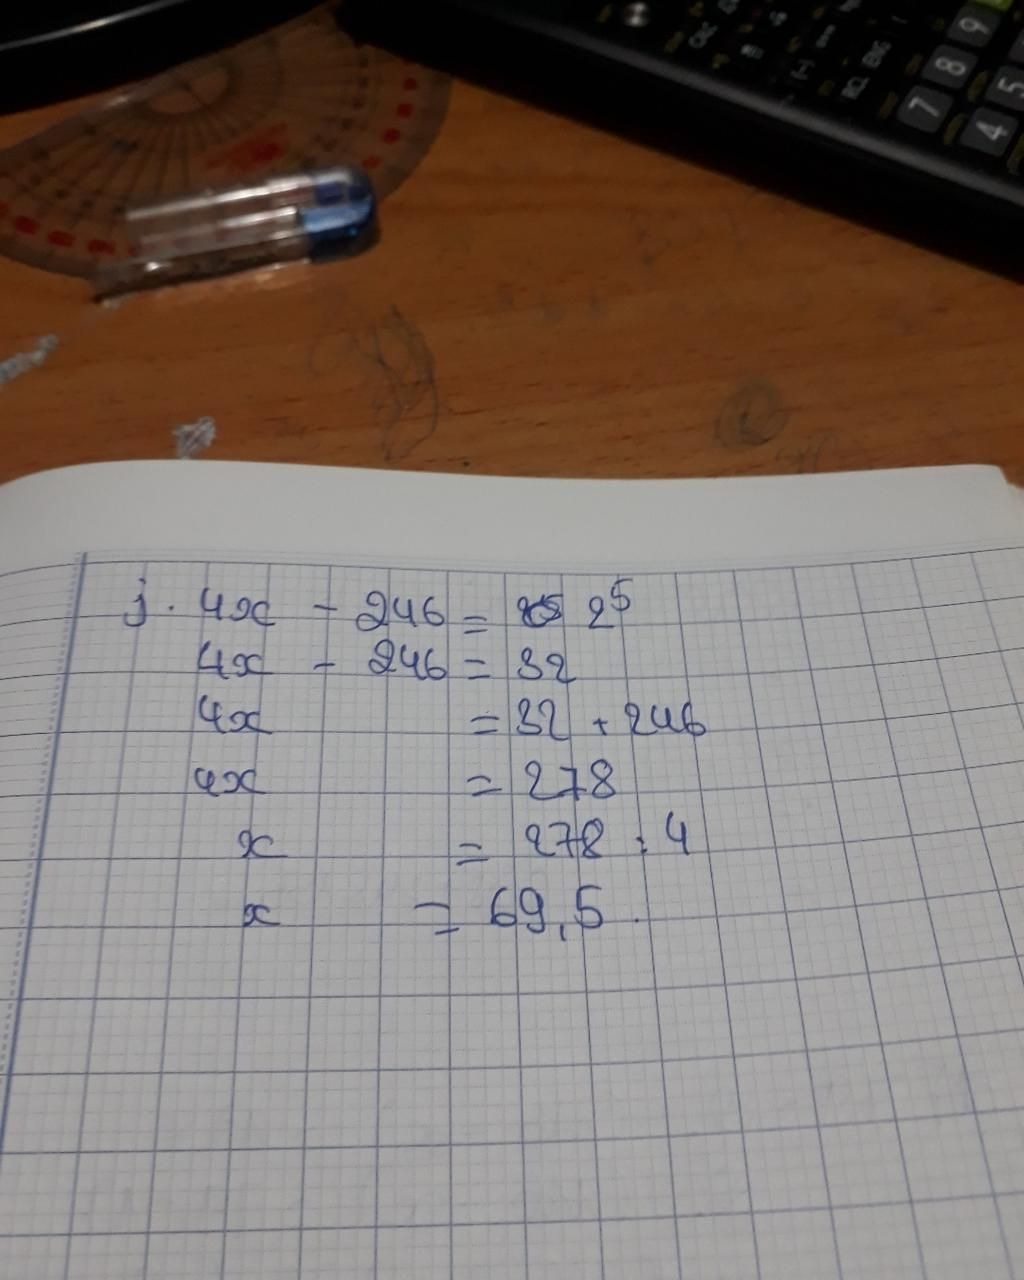 CALC
ENG
7
8
9
4
5
j. 4x - 246 = 2⁵
4x - 246 = 32
4x = 32 + 246
4x = 278
x = 278 : 4
x = 69,5.